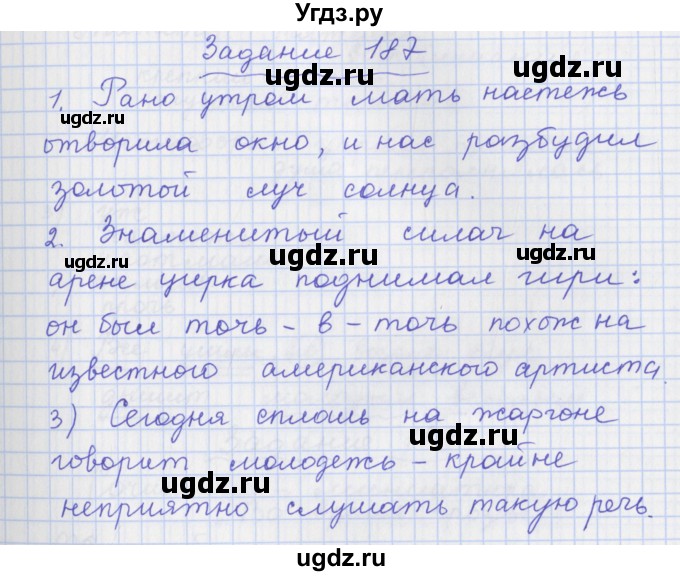 Угдз.ру
Задание 187
ugdz.ru
1. Рано утром мать настежь
ugdz.ru ugdz.ru
отворила окно, и нас разбудил
золотой луч солнца.
2. Знаменитый силач на
ugdz.ru ugdz.ru ugdz.ru
арене цирка поднимал гири:
он был точь-в-точь похож на
ugdz.ru
известного американского артиста.
3) Сегодня сплошь на жаргоне
ugdz.ru
говорит молодежь - крайне
ugdz.ru
неприятно слушать такую речь.
ugdz.ru ugdz.ru
Угдз.ру